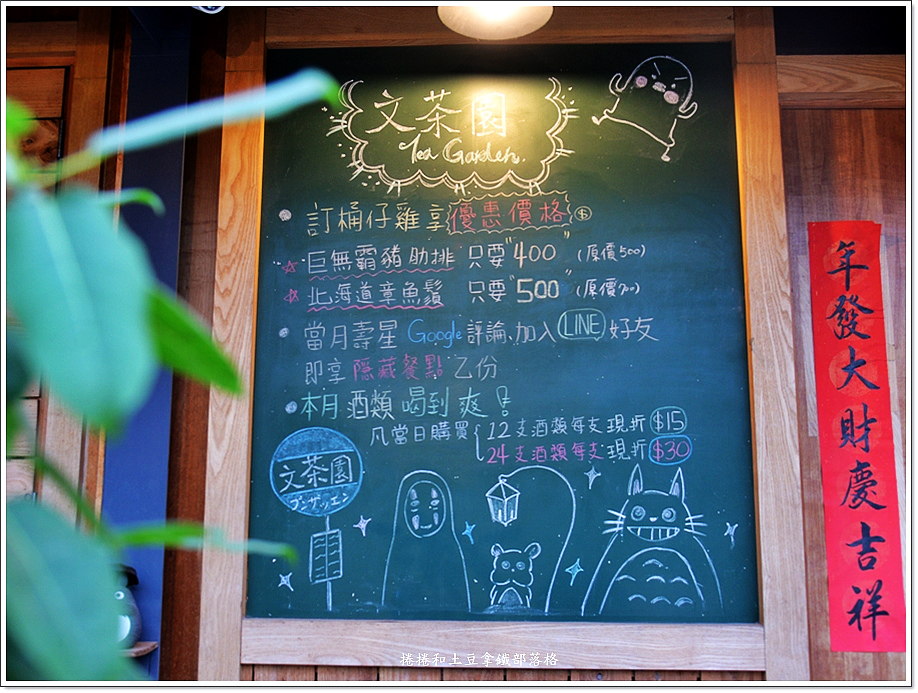 文茶園
Tea Garden
訂桶仔雞享優惠價格 $
巨無霸豬肋排 只要"400" (原價500)
北海道章魚鬚 只要"500" (原價700)
當月壽星 Google評論、加入LINE好友
即享隱藏餐點乙份
本月酒類喝到爽!
凡當日購買 12支酒類每支現折 $15
24支酒類每支現折 $30
文茶園
ブンザツエン
年發大財慶吉祥
捲捲和土豆拿鐵部落格